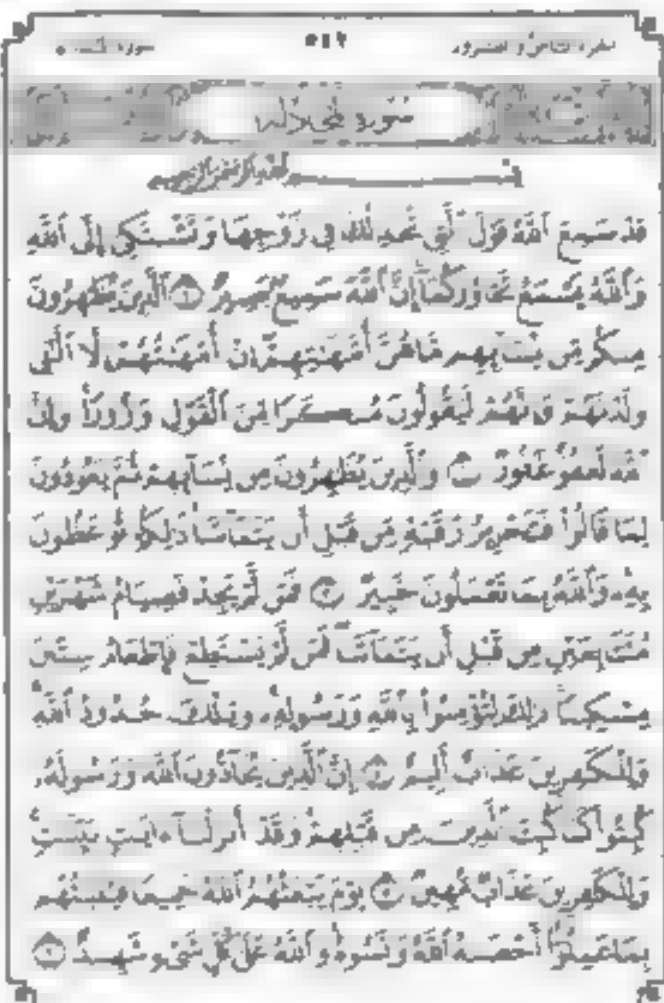 الجزء الثامن والعشرون ٥٤٢ سورة المجادلة
سورة المجادلة
بسم الله الرحمن الرحيم
قَدْ سَمِعَ ٱللَّهُ قَوْلَ ٱلَّتِي تُجَٰدِلُكَ فِي زَوْجِهَا وَتَشْتَكِيٓ إِلَى ٱللَّهِ
وَٱللَّهُ يَسْمَعُ تَحَاوُرَكُمَآ إِنَّ ٱللَّهَ سَمِيعٌۢ بَصِيرٌ ١ ٱلَّذِينَ يُظَٰهِرُونَ
مِنكُم مِّن نِّسَآئِهِم مَّا هُنَّ أُمَّهَٰتِهِمْ إِنْ أُمَّهَٰتُهُمْ إِلَّا ٱلَّٰٓـِٔي
وَلَدْنَهُمْ وَإِنَّهُمْ لَيَقُولُونَ مُنكَرًا مِّنَ ٱلْقَوْلِ وَزُورًا وَإِنَّ
ٱللَّهَ لَعَفُوٌّ غَفُورٌ ٢ وَٱلَّذِينَ يُظَٰهِرُونَ مِن نِّسَآئِهِمْ ثُمَّ يَعُودُونَ
لِمَا قَالُوا۟ فَتَحْرِيرُ رَقَبَةٍ مِّن قَبْلِ أَن يَتَمَآسَّا ذَٰلِكُمْ تُوعَظُونَ
بِهِۦ وَٱللَّهُ بِمَا تَعْمَلُونَ خَبِيرٌ ٣ فَمَن لَّمْ يَجِدْ فَصِيَامُ شَهْرَيْنِ
مُتَتَابِعَيْنِ مِن قَبْلِ أَن يَتَمَآسَّا فَمَن لَّمْ يَسْتَطِعْ فَإِطْعَامُ سِتِّينَ
مِسْكِينًا ذَٰلِكَ لِتُؤْمِنُوا۟ بِٱللَّهِ وَرَسُولِهِۦ وَتِلْكَ حُدُودُ ٱللَّهِ
وَلِلْكَٰفِرِينَ عَذَابٌ أَلِيمٌ ٤ إِنَّ ٱلَّذِينَ يُحَآدُّونَ ٱللَّهَ وَرَسُولَهُۥ
كُبِتُوا۟ كَمَا كُبِتَ ٱلَّذِينَ مِن قَبْلِهِمْ وَقَدْ أَنزَلْنَآ ءَايَٰتٍۭ بَيِّنَٰتٍ
وَلِلْكَٰفِرِينَ عَذَابٌ مُّهِينٌ ٥ يَوْمَ يَبْعَثُهُمُ ٱللَّهُ جَمِيعًا فَيُنَبِّئُهُم
بِمَا عَمِلُوٓا۟ أَحْصَىٰهُ ٱللَّهُ وَنَسُوهُ وَٱللَّهُ عَلَىٰ كُلِّ شَىْءٍ شَهِيدٌ ٦